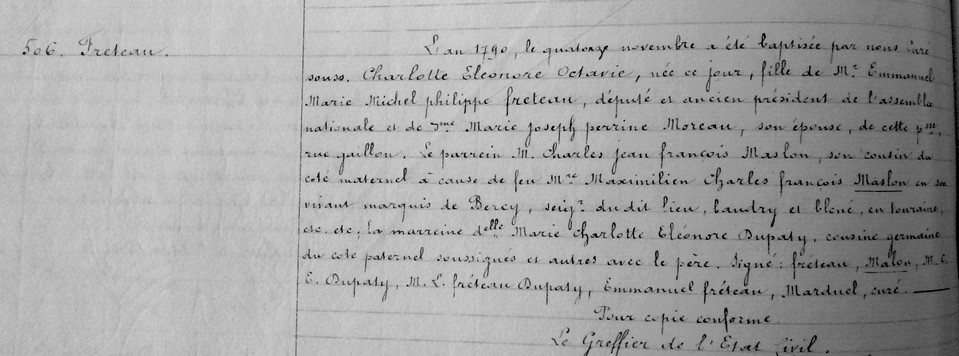 506. Freteau.
L'an 1790, le quatorze novembre a été baptisée par nous curé
souss. Charlotte Eléonore Octavie, née ce jour, fille de Mre Emmanuel
Marie Michel philippe freteau, député et ancien président de l'assemblée
nationale et de Dme Marie Joseph perrine Moreau, son épouse, de cette psse,
rue gaillon. Le parrein M. Charles jean françois Maslon, son cousin du
coté maternel à cause de feu Mre Maximilien Charles françois Maslon en son
vivant marquis de Bercy, seigr. du dit lieu, baudry et blené, en touraine,
etc. etc; la marreine delle Marie Charlotte Eléonore Dupaty, cousine germaine
du coté paternel soussignés et autres avec le père. Signé: fréteau, Malon, M. C.
E. Dupaty, M. L. fréteau Dupaty, Emmanuel fréteau, Marduel, curé.
Pour copie conforme
Le Greffier de l'Etat Civil.